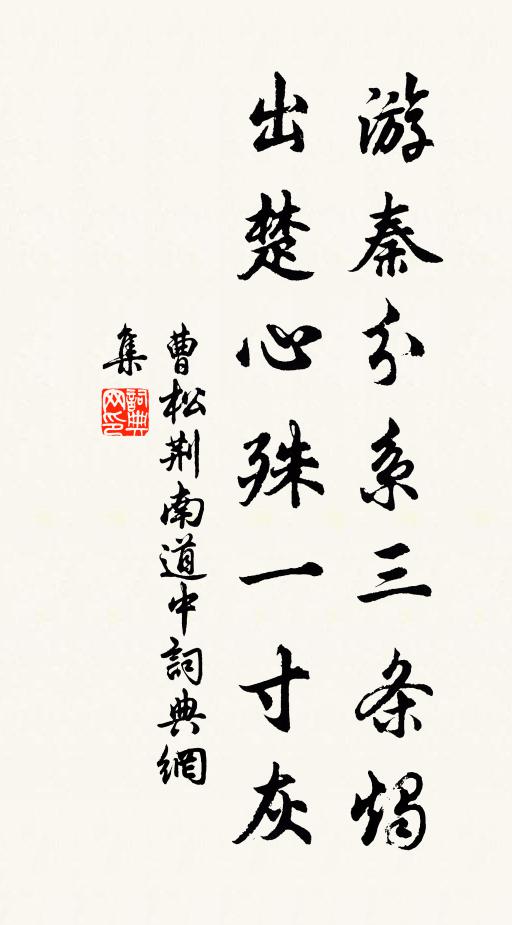 游秦分系三条燭
出楚心殊一寸灰
曹松荆南道中詞典網
集
詞典网印